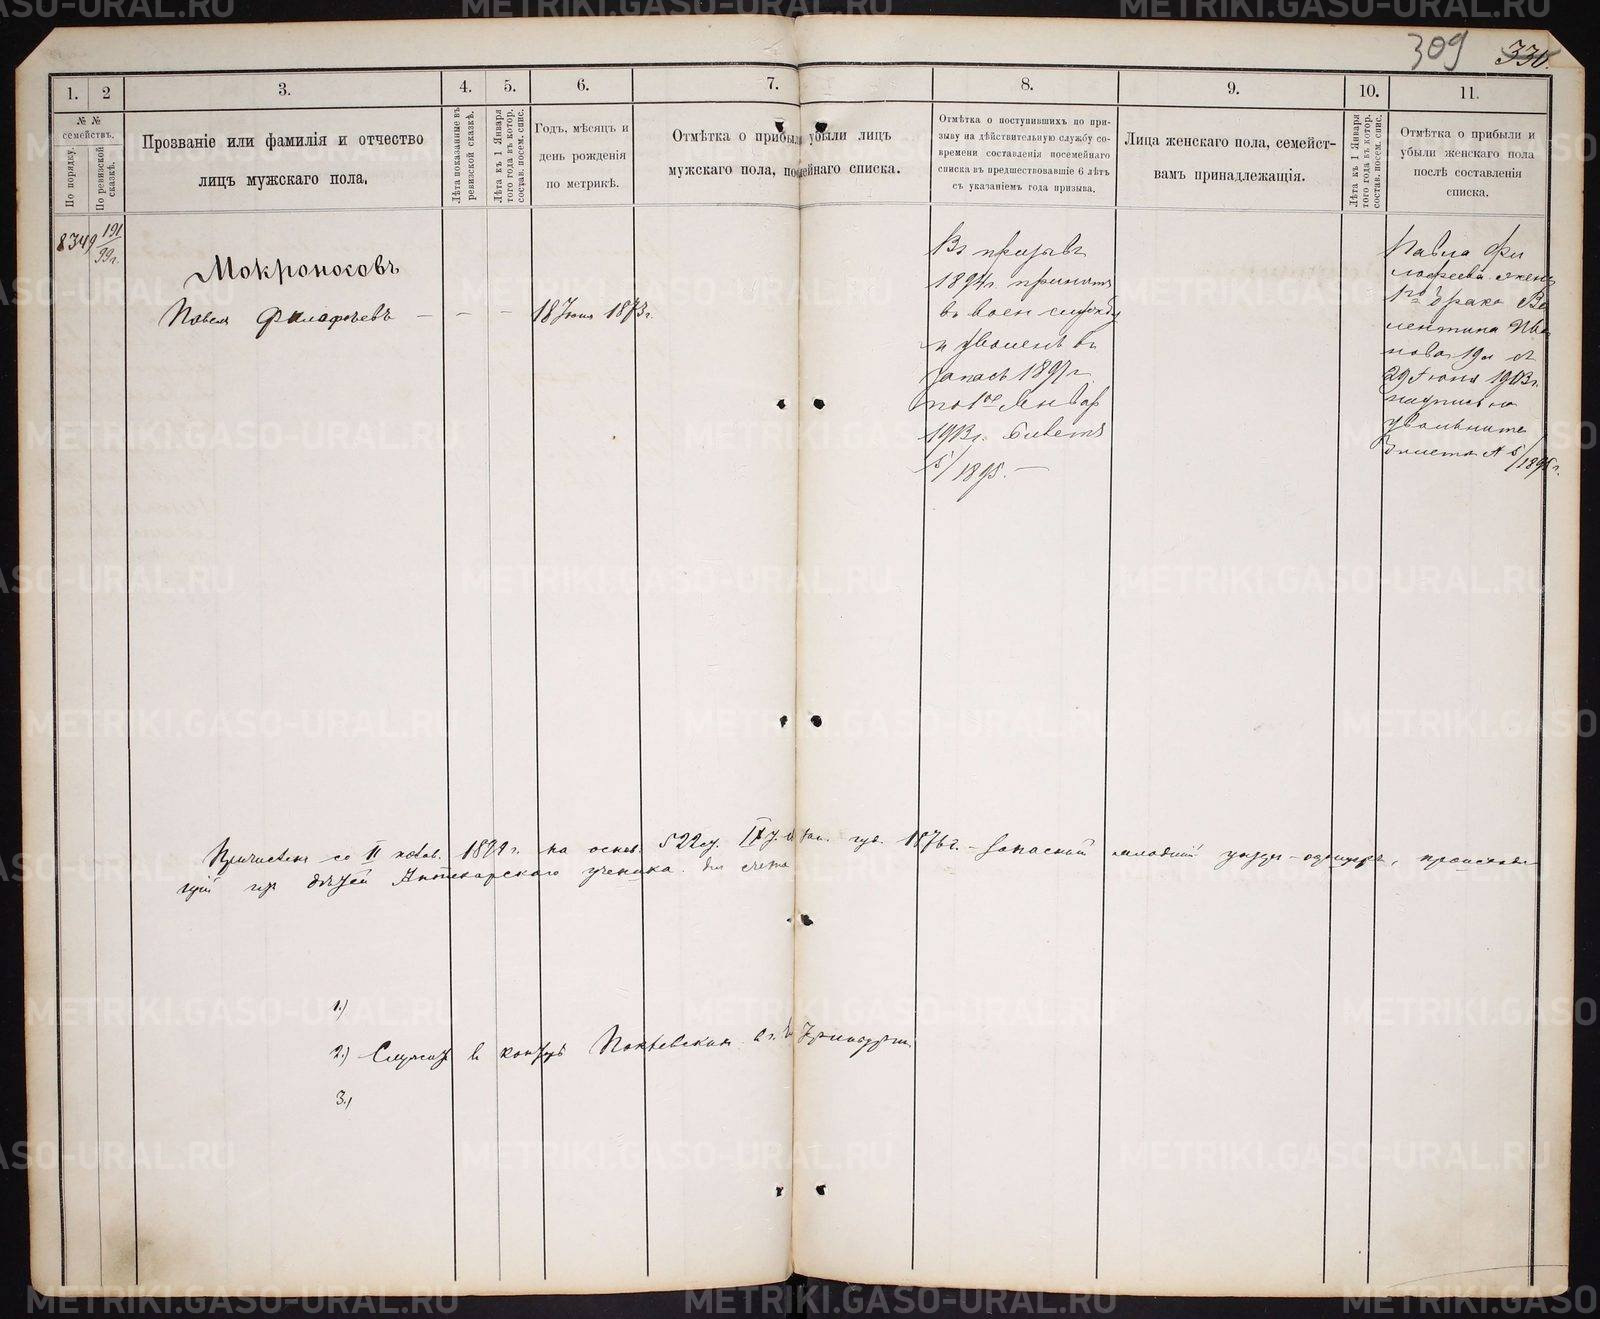 309 330.
1. 2 3. 4. 5. 6. 7. 8. 9. 10. 11.
№ №
семействъ.
По порядку.
По ревизской
сказкѣ.
Прозваніе или фамилія и отчество
лицъ мужскаго пола.
Лѣта показанные въ
ревизской сказкѣ.
Лѣта къ 1 Января
того года въ котор.
состав. посем. спис.
Годъ, мѣсяцъ и
день рожденія
по метрикѣ.
Отмѣтка о прибыли убыли лицъ
мужскаго пола, посемейнаго списка.
Отмѣтка о поступившихъ по при-
зыву на дѣйствительную службу со-
времени составленія посемейнаго
списка въ предшествовавшіе 6 лѣтъ
съ указаніем года призыва.
Лица женскаго пола, семейст-
вамъ принадлежащія.
Лѣта къ 1 Января
того года въ котор.
состав. посем. спис.
Отмѣтка о прибыли и
убыли женскаго пола
послѣ составленія
списка.
8349 191/99г.
Мокроносовъ
Павелъ Филофѣевъ — — — 18 Іюня 1873г.
Въ призывъ
1894г. принятъ
въ воен службу
и уволенъ въ
запасъ 1897г.
по 1ое Январ
1913г. билетъ
5/1895. —
Павла Фи
лофеева жена
1го брака Ва
лентина Ива
нова 19л съ
29 Іюня 1903г.
надпись на
увольнит
билета №5/1895г.
Причисленъ со 11 на основ. 522 ст. IX т. изд. 1876г. — Запасной младшій унтеръ-офицеръ, происходя-
щій изъ дѣтей Аптекарскаго ученика.
1.)
2.) Служитъ в конторѣ
3.)
METRIKI.GASO-URAL.RU